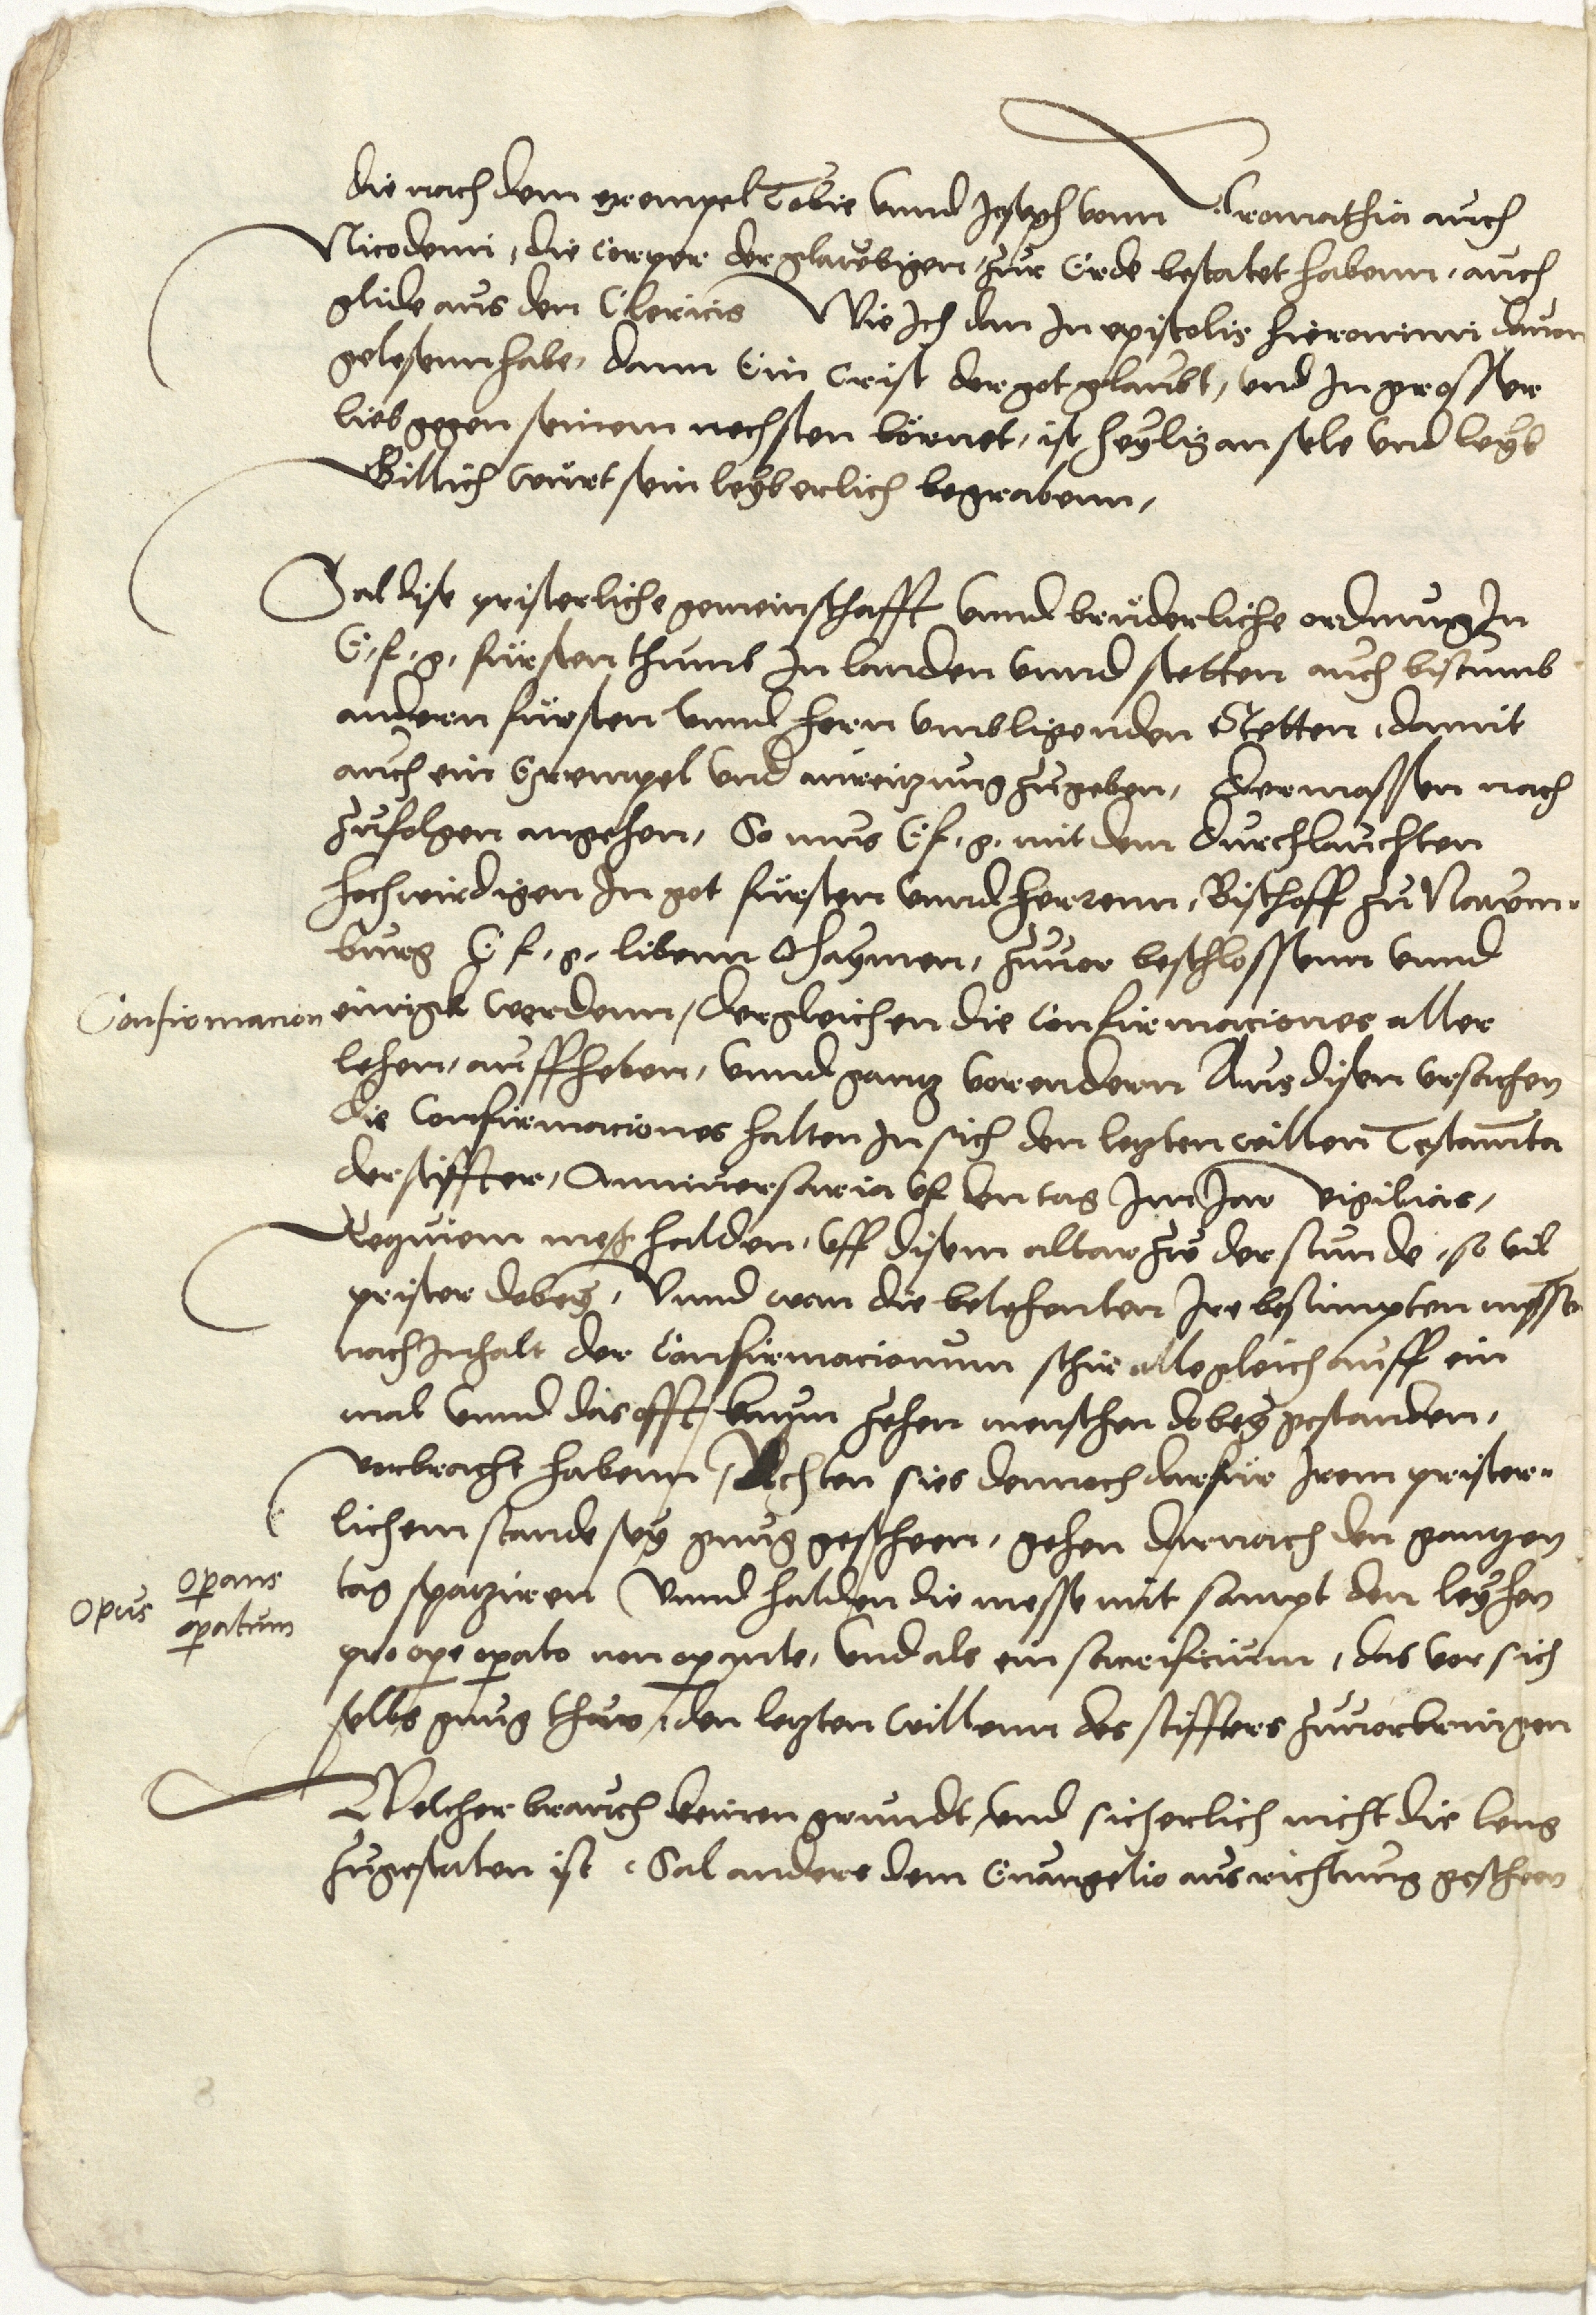 die nach dem exempel Tobie vnnd Joseph vonn Aromathia auch
Nicodemi, die corper der glaubigen, zur Erde bestatet habenn, auch
glide aus den Clericis Wie Ich dan In epistolis Hieronimi dauon
gelesenn habe, dann Ein Crist der got glaubt, vnd In grosser
lieb gegen seinem nechsten börnet, ist heylig an sele vnd leyb
Billich wurt sein leyb erlich begrabenn,
Sal dise pristerliche gemeinschafft vnnd bruderliche ordnung In
E. f. g. fursten thumb In landen vnnd stetten auch bistumb
andern fursten vnnd hern vmbligenden Stetten, damit
auch ein Exempel vnd anreitzung zugeben, Dermassen nach
zufolgen angehen, So mus E f. g. mit dem durchlauchten
hochwirdigen In got fursten vnnd herrenn, Bischoff zu Naum-
burg E f. g. libenn Ohaymen, zuuor beschlossenn vnnd
Confirmacion
einigk werdenn, dergleichen die Confirmaciones aller
lehen, auffheben, vnnd gantz vorendern Aus disen vrsachen
Die Confirmaciones halten In sich den letzten willen Testamenta
der stiffter, Anniuersaria vf den tag Im Jar vigilias,
Requiem mess halden, vff disem altar zu der stunde, so vil
prister dobey, Vnnd wan die belehenten Ire bestimpten messen
nach Inhalt der Confirmacionum schir alle gleich auff ein
mal vnnd das offt, kaum zehen menschen dobey gestanden,
vorbracht habenn, Achten sies dennoch darfur Irem prister-
lichem stande sey gnug gescheen, gehen darnach den gantzen
Opus operans
operatum
tag spatziren Vnnd halden die messe mit sampt den leyhen
pro ope opato non opante, vnd als ein sacrificium, das vor sich
selbs gnug thuw, den letzten willenn des stiffters zuuorbringen
Welcher brauch keinen grundt, vnd sicherlich nicht die leng
zugestaten ist, Sal anders dem Euangelio ausrichtung gescheen